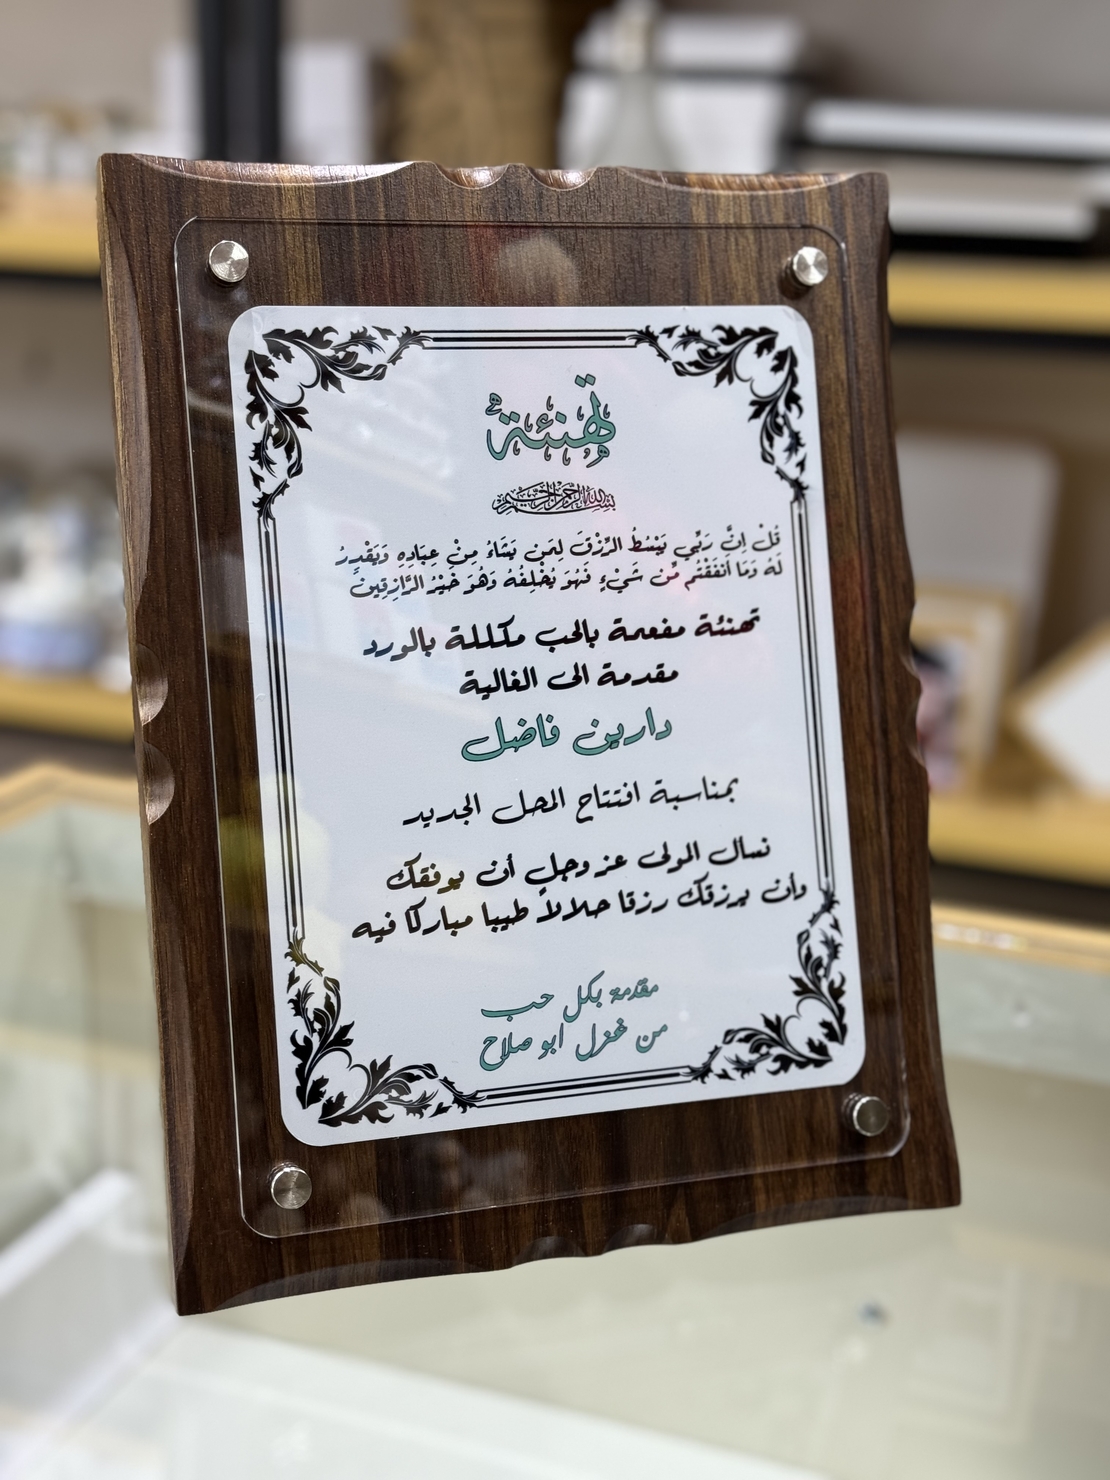 تهنئة
بسم الله الرحمن الرحيم
قُلْ اِنَّ رَبِّي يَبْسُطُ الرِّزْقَ لِمَن يَشَاءُ مِنْ عِبَادِهِ وَيَقْدِرُ
لَهُ وَمَا أَنفَقْتُم مِّن شَيْءٍ فَهُوَ يُخْلِفُهُ وَهُوَ خَيْرُ الرَّازِقِينَ
تهنئة مفعمة بالحب مكللة بالورد
مقدمة الى الغالية
دارين فاضل
بمناسبة افتتاح المحل الجديد
نسال المولى عز وجل أن يوفقك
وأن يرزقك رزقا حلالاً طيبا مباركا فيه
مقدمة بكل حب
من غزل ابو صلاح